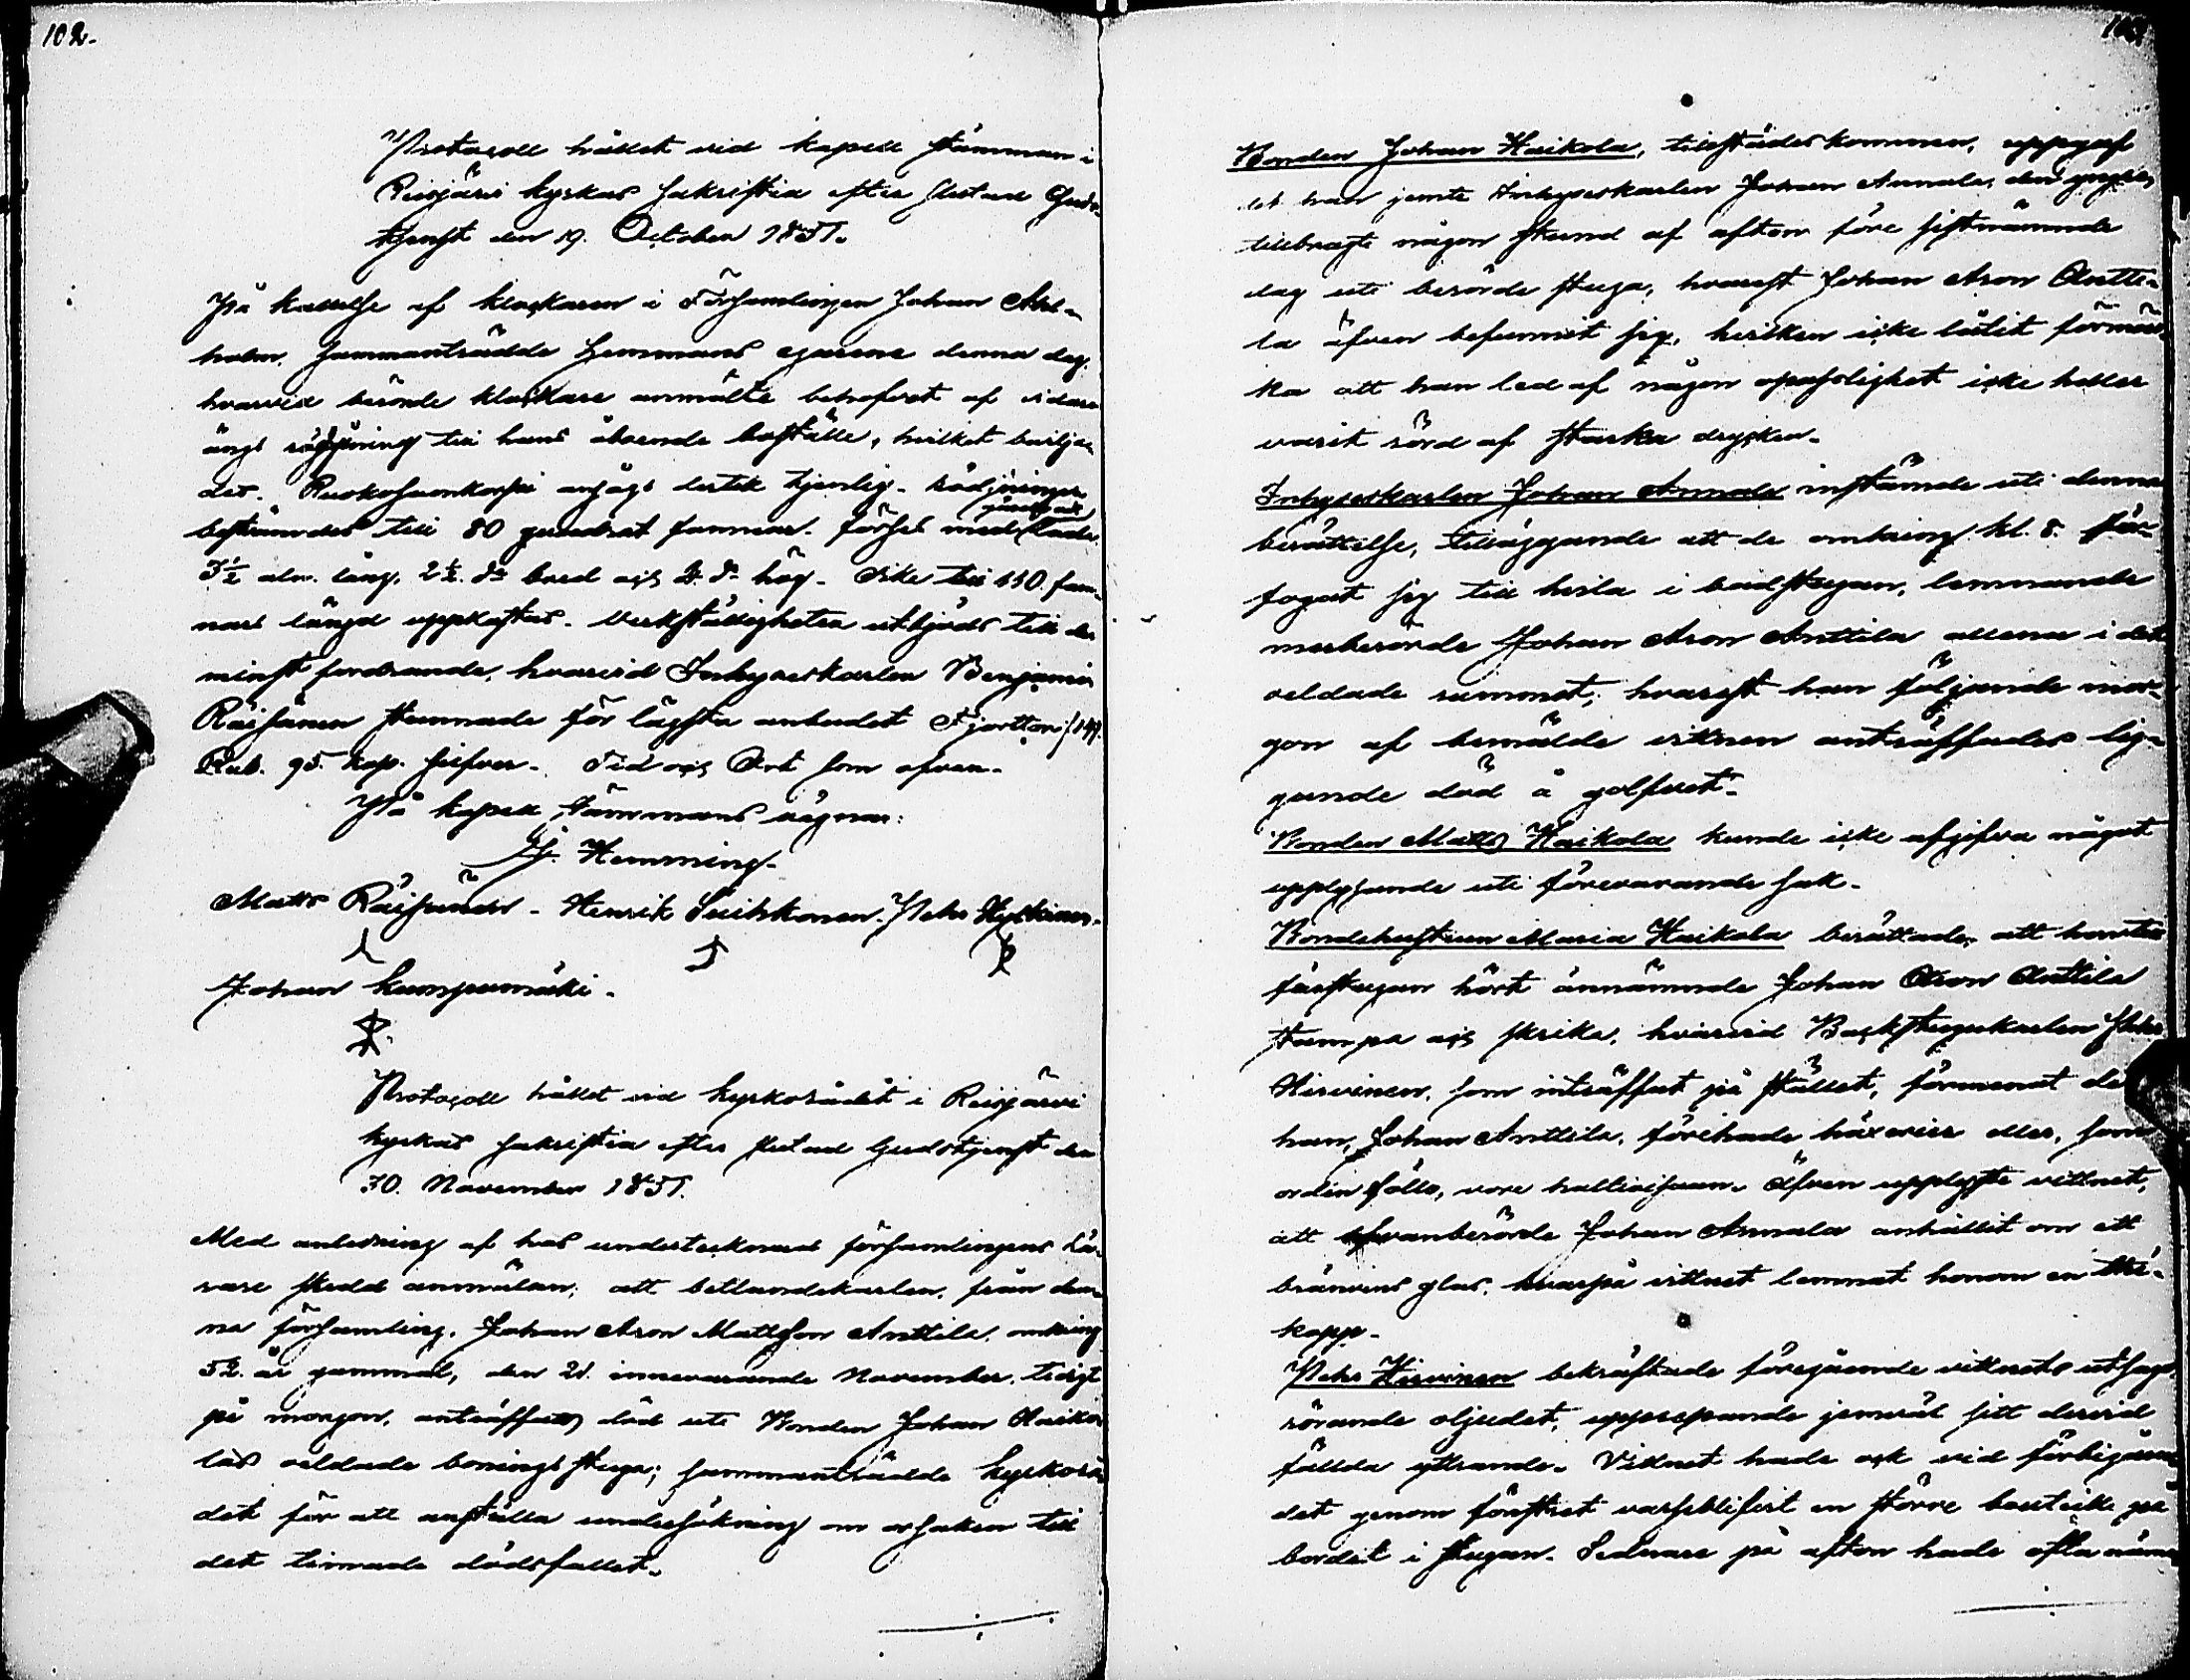 102.
Protocoll hållet vid kapell stämman i
Reisjärvi kyrkas sakristia efter slutad Guds-
tjenst den 19. October 1851.
På kallelse af klockaren i Församlingen Johan Ahl-
holm, sammanträdde hemmans egarene denna dag,
hvarvid berörde klockare anmälte behofvet af vidare
ängs rödjning till hans åboende boställe, hvilket bevilja-
des. Ruokosuonkorpi ansågs dertill tjenlig. Rödjningen
bestämdes till 80 quadrat famnar. förses med lada
3½ aln. lång, 2½ do bred och 2. do hög. Dike till 110. fam-
nars längd uppkastas. Verkställigheten utbjöds till den
minst fordrande, hvarvid Inhyseskarlen Benjamin
Räisänen stannade för lägsta anbudet Fjorton /14/.
Rub. 95. kop. silfver. Tid och Ort som ofvan.
På kapell stämmans vägnar:
Hemming.
Matts Räisänen. Henrik Puikkonen. Pehr Hylkinen.
Johan Kumpumäki.
Protocoll hållet vid kyrkorådet i Reisjärvi
kyrkas sakristia efter slutad Gudstjenst den
30. November 1851.
Med anledning af hos undertecknad församlingens Lä-
rare skedd anmälan, att betlandekarlen, från den-
na församling, Johan Aron Mattsson Anttila, omkring
52. år gammal, den 21. innevarande November, tidigt
på morgon, anträffats död uti Bonden Johan Haiko-
las oeldade boningsstuga; sammanträdde kyrkorå-
det för att anställa undersökning om orsaken till
det timade dödsfallet.
Bonden Johan Haikola, tillstädeskommen, uppgaf
det han jemte Inhyseskarlen Johan Annala, den yngre,
tillbragt någon stund af afton före sistnämnde
dag uti berörde stuga, hvarest Johan Aron Antti-
la äfven befunnit sig, hvilken icke låtit förmär-
ka att han led af någon opasslighet icke heller
varit rörd af starka drycker.
Inhyseskarlen Johan Annala instämde uti denna
berättelse, tilläggande att de omkring kl. 8. för-
fogat sig till hvila i badstugan, lemnande
merberörde Johan Aron Anttila allena i det
oeldade rummet, hvarest han följande mor-
gon af bemälde vittnen anträffades lig-
gande död å golfvet.
Bonden Matts Haikola kunde icke afgifva något
upplysande uti förevarande sak.
Bondehustrun Maria Haikola berättade, att hon till
farstugan hört ännämnde Johan Aron Anttila
stampa och skrika, hvarvid Backstugukarlen Pehr
Hirvinen, som inträffat på stället, förmenat det
han, Johan Anttila, förehade häxerier eller, som
orden föllo, vore haltioissaan. Äfven upplyste vittnet,
att ofvanberörde Johan Annala anhållit om ett
bränvins glas, hvarpå vittnet lemnat honom en thé-
kopp.
Pehr Hirvinen bekräftade föregående vittnets utsago
rörande oljudet, upprepande jemväl sitt dervid
fällda yttrande. Vittnet hade ock vid förbigåen-
det genom fönstret varseblifvit en större bouteille på
bordet i stugan. Sednare på afton hade ofta nämn-